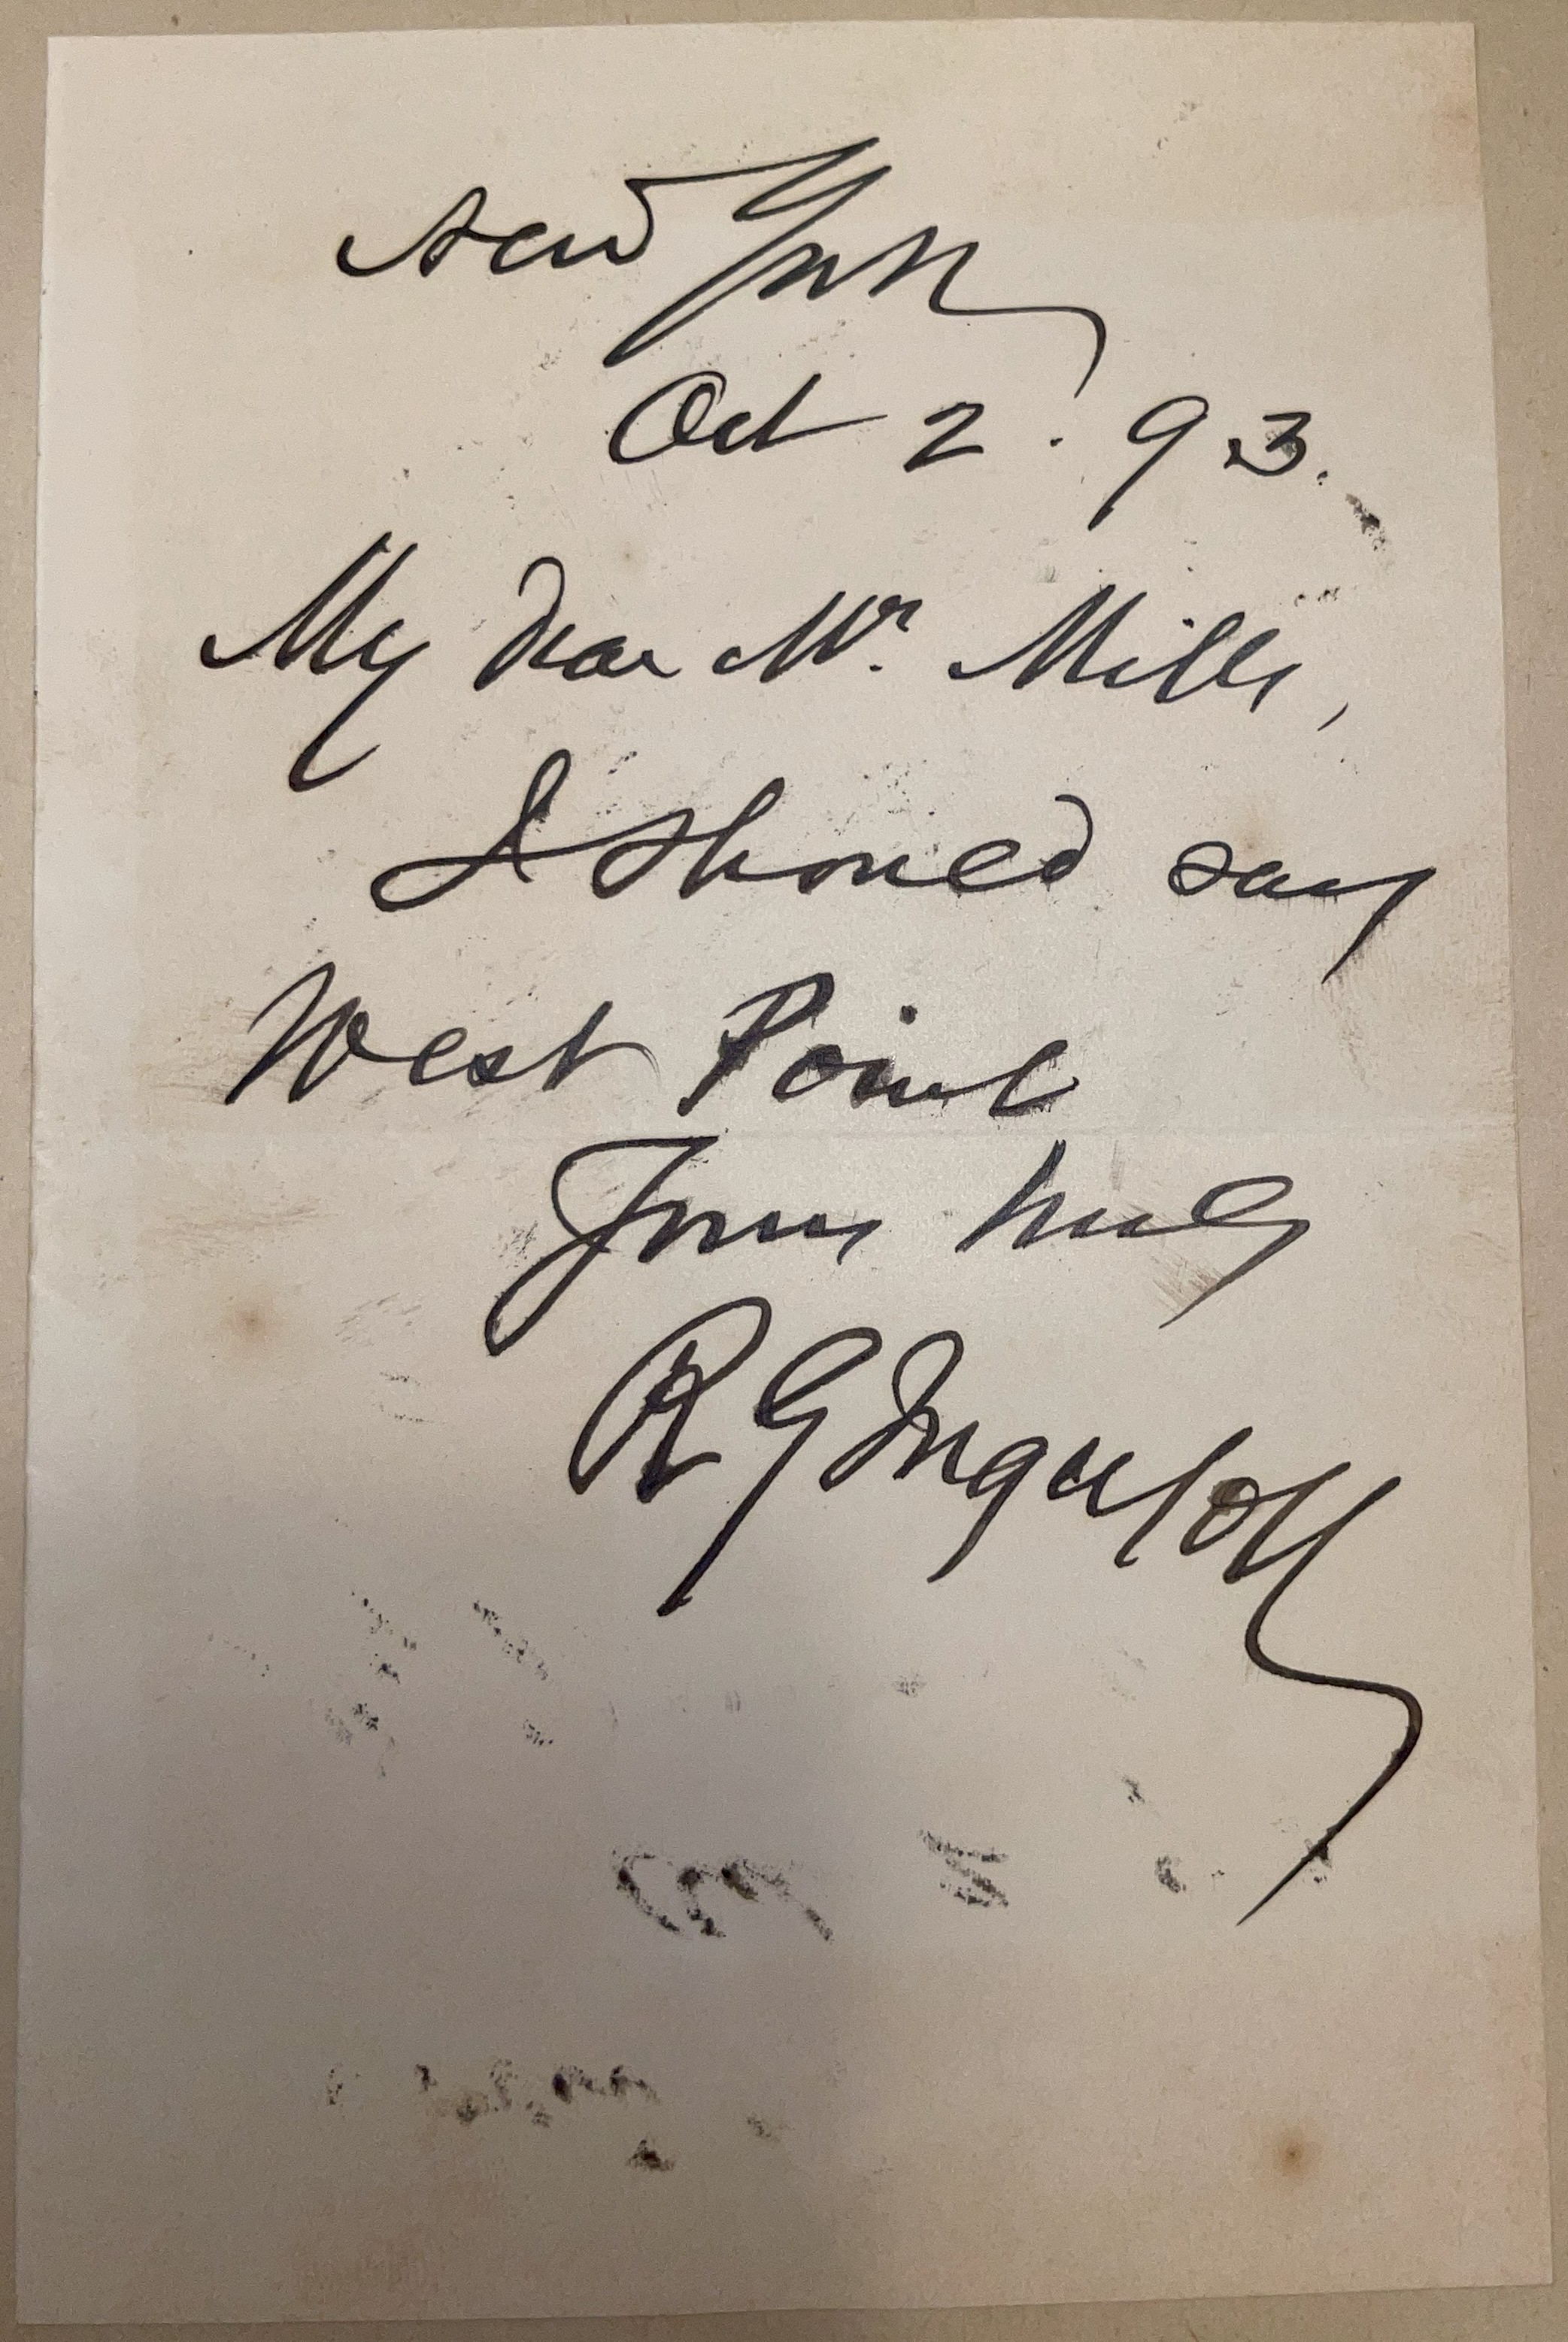 New York
Oct 2. 93.
My dear Mr. Mills,
I should say
West Point
Yours truly
R G Ingersoll